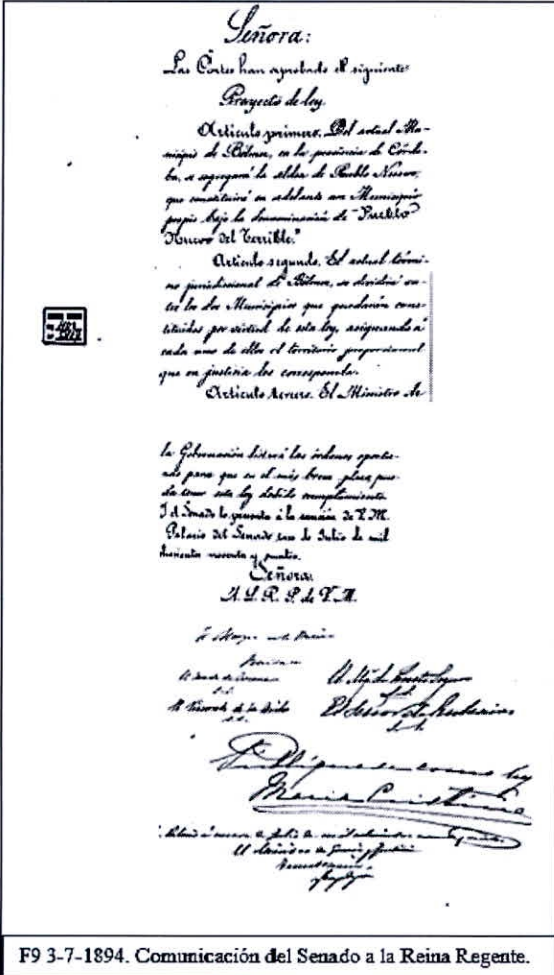 Señora:
Las Córtes han aprobado el siguiente
Proyecto de ley.
Artículo primero. Del actual Mu-
nicipio de Bélmez, en la provincia de Córdo-
ba, se segregará la aldea de Pueblo Nuevo,
que constituirá en adelante un Municipio
propio bajo la denominación de "Pueblo
Nuevo del Terrible."
Artículo segundo. El actual térmi-
no jurisdiccional de Bélmez, se dividirá en-
tre los dos Municipios que quedarán cons-
tituidos por virtud de esta ley, asignando á
cada uno de ellos el territorio proporcional
que en justicia les corresponda.
Artículo tercero. El Ministro de
la Gobernación dictará las órdenes oportu-
nas para que en el más breve plazo pue-
da tener esta ley debido cumplimiento.
Y el Senado lo presenta á la sanción de V. M.
Palacio del Senado tres de Julio de mil
ochocientos noventa y cuatro.
Señora:
A. L. R. P. de V. M.
Publíquese como ley
María Cristina
El Ministro de Gracia y Justicia
F9 3-7-1894. Comunicación del Senado a la Reina Regente.